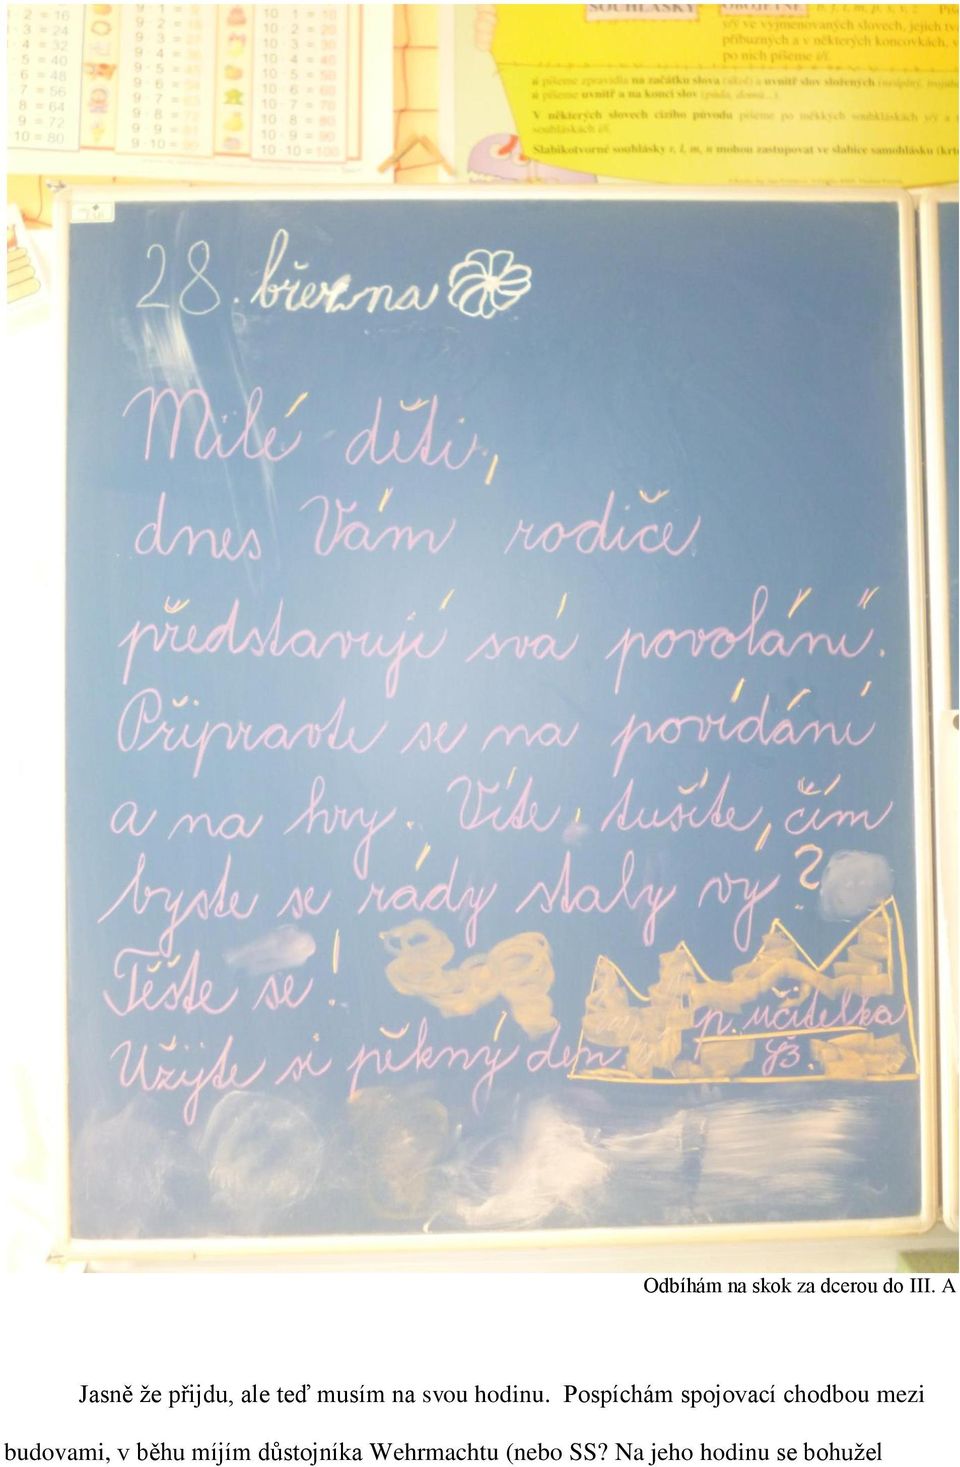 2 = 16
3 = 24
4 = 32
5 = 40
6 = 48
7 = 56
8 = 64
9 = 72
10 = 80
9 · 1 =
9 · 2 =
9 · 3 =
9 · 4 =
9 · 5 =
9 · 6 =
9 · 7 =
9 · 8 =
9 · 9 =
9 · 10 =
10 · 1 = 10
10 · 2 = 20
10 · 3 = 30
10 · 4 = 40
10 · 5 = 50
10 · 6 = 60
10 · 7 = 70
10 · 8 = 80
10 · 9 = 90
10 · 10 = 100
SOUHLÁSKY
OBOJETNÉ b, f, l, m, p, s, v, z
y/ý ve vyjmenovaných slovech, jejich
příbuzných a v některých koncovkách, v
po nich píšeme i/í.
ú píšeme zpravidla na začátku slova a uvnitř slov složených
ů píšeme uvnitř a na konci slov
V některých slovech cizího původu píšeme po měkkých souhláskách y/ý a
souhláskách i/í.
Slabikotvorné souhlásky r, l, m, n mohou zastupovat ve slabice samohlásku
28. března
Milé děti,
dnes Vám rodiče
představují svá povolání.
Připravte se na povídání
a na hry. Víte, tušíte, čím
byste se rády staly vy?
Těšte se!
Užijte si pěkný den
p. učitelka
Odbíhám na skok za dcerou do III. A
Jasně že přijdu, ale teď musím na svou hodinu. Pospíchám spojovací chodbou mezi
budovami, v běhu míjím důstojníka Wehrmachtu (nebo SS? Na jeho hodinu se bohužel